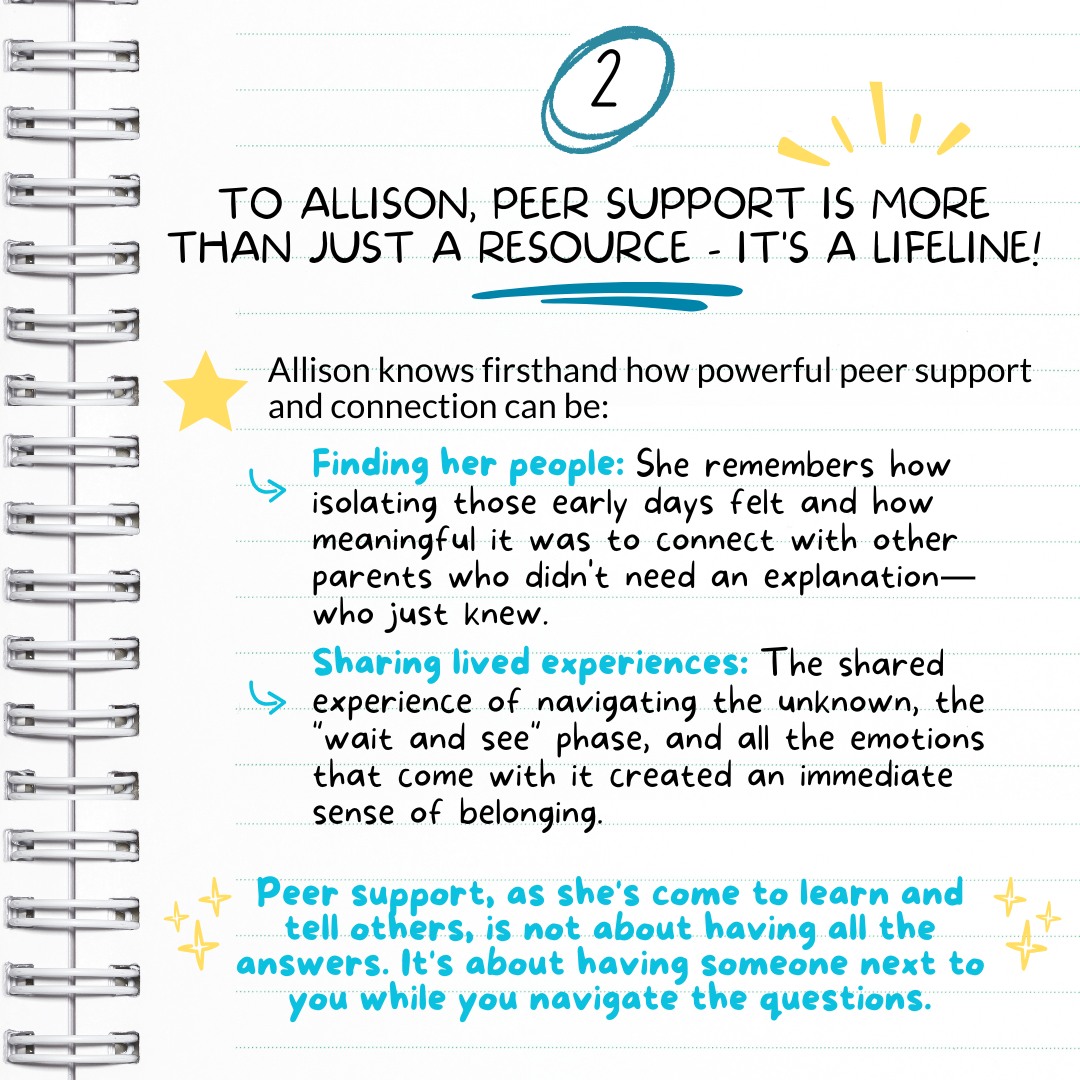 2
TO ALLISON, PEER SUPPORT IS MORE
THAN JUST A RESOURCE - IT'S A LIFELINE!
Allison knows firsthand how powerful peer support
and connection can be:
Finding her people: She remembers how
isolating those early days felt and how
meaningful it was to connect with other
parents who didn't need an explanation—
who just knew.
Sharing lived experiences: The shared
experience of navigating the unknown, the
"wait and see" phase, and all the emotions
that come with it created an immediate
sense of belonging.
Peer support, as she's come to learn and
tell others, is not about having all the
answers. It's about having someone next to
you while you navigate the questions.